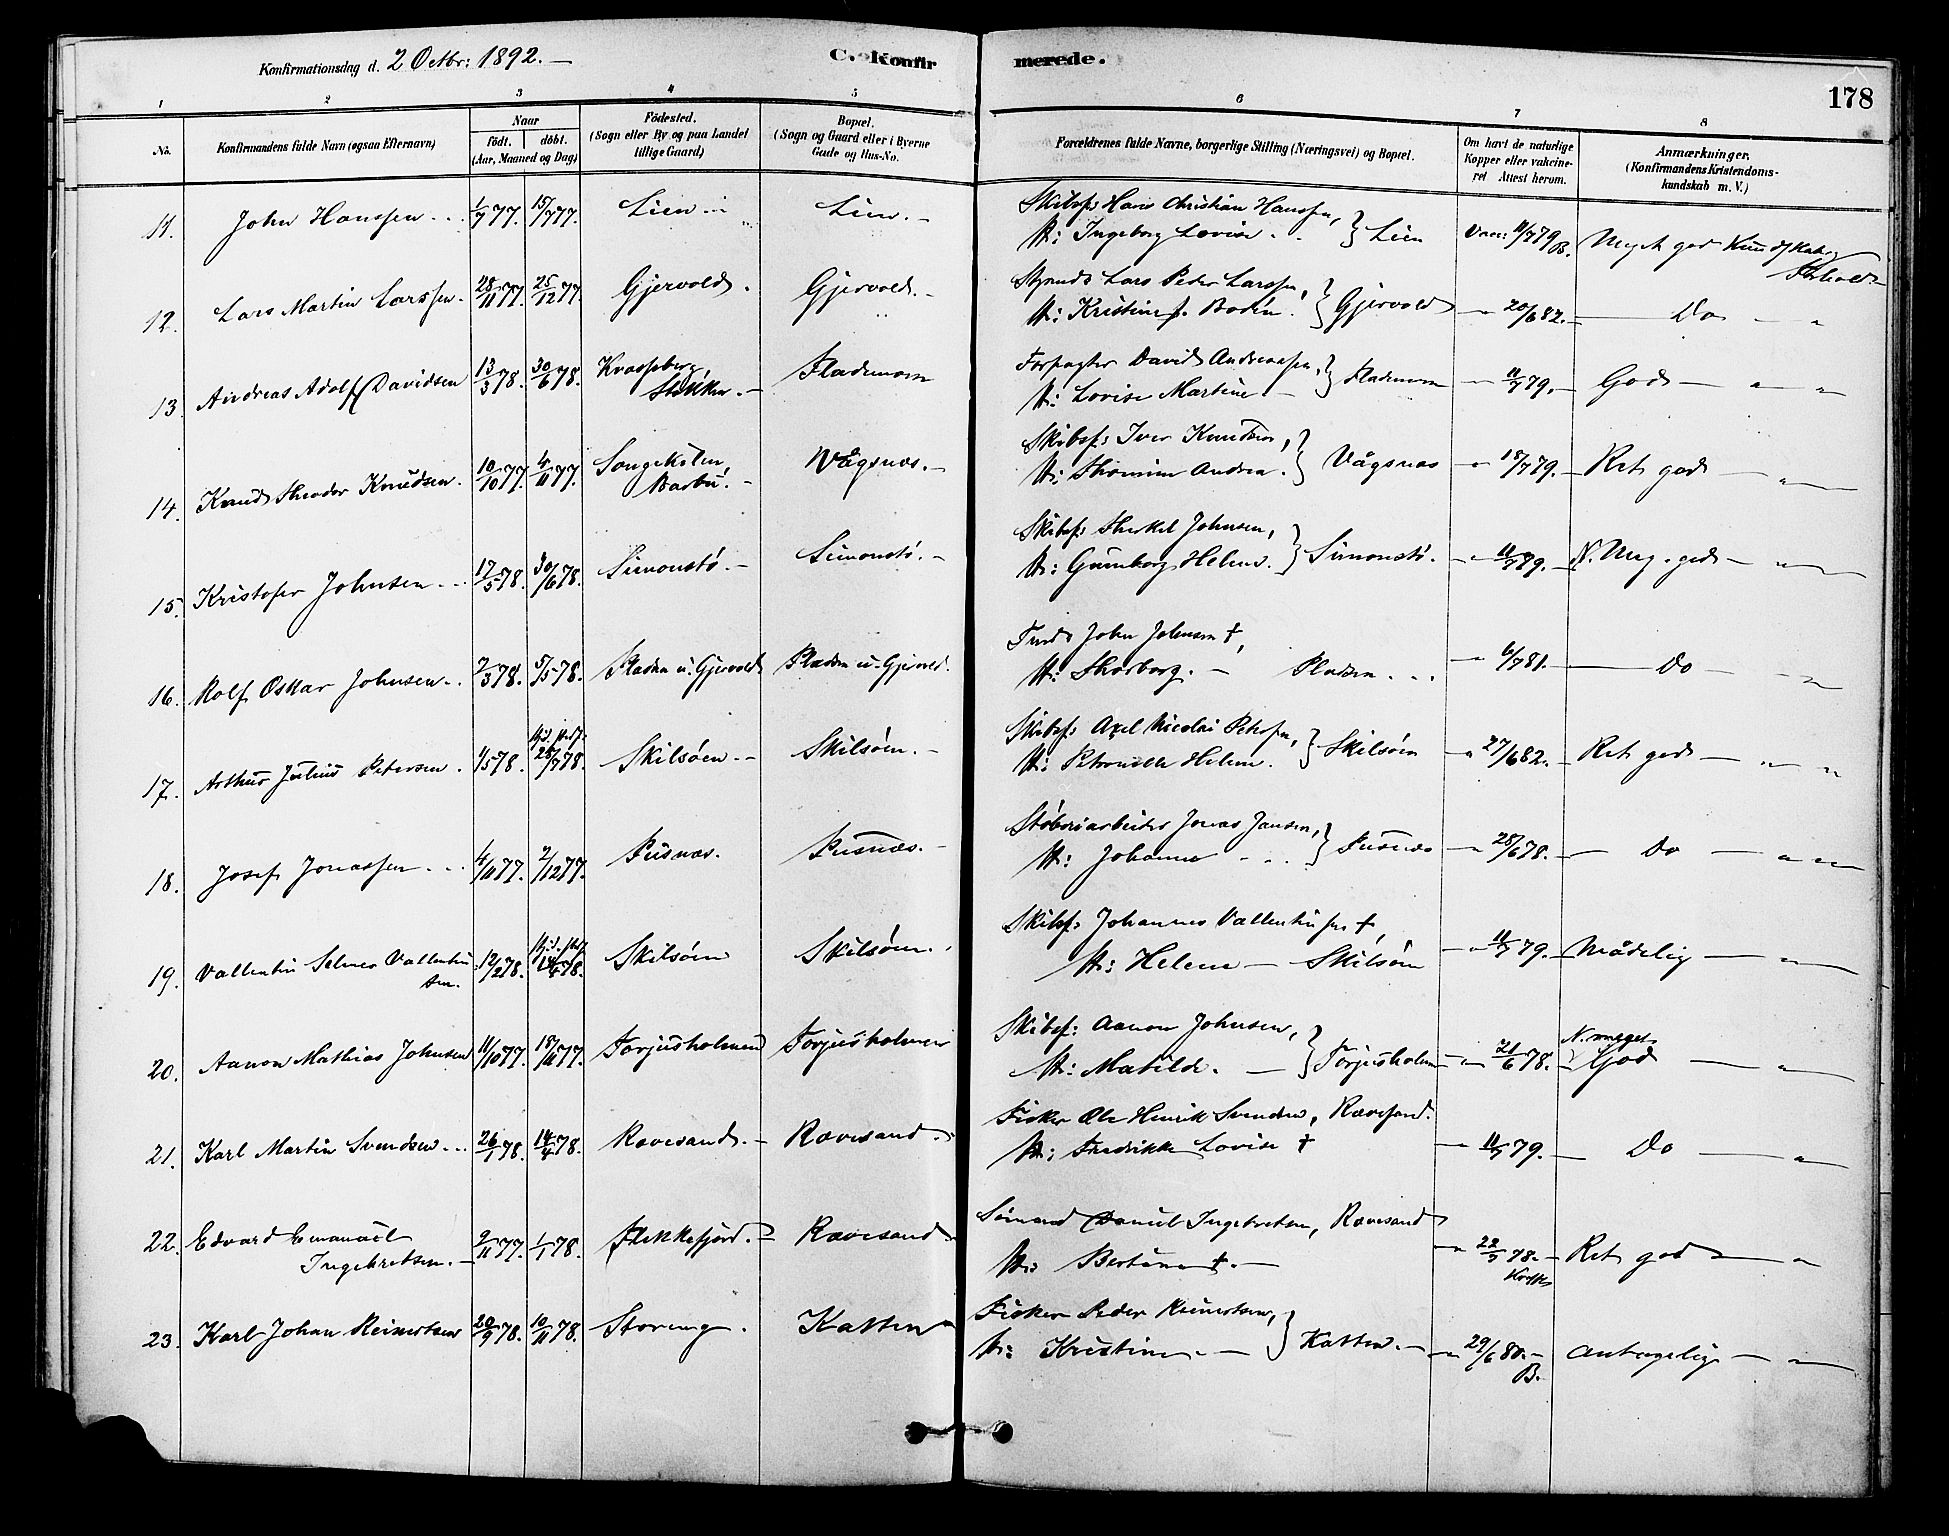 Konfirmationsdag d. 2 Octbr: 1892. —
C. Konfirmerede.
178
1 2 3 4 5 6 7 8
No. Konfirmandens fulde Navn (ogsaa Efternavn) Naar födt. döbt. (Aar, Maaned og Dag) Födested. (Sogn eller By og paa Landet tillige Gaard) Bopæl. (Sogn og Gaard eller i Byerne Gade og Hus-No. Forældrenes fulde Navne, borgerlige Stilling (Næringsvei) og Bopæl. Om havt de naturlige Kopper eller vakcineret Attest herom. Anmærkninger. (Konfirmandens Kristendomskundskab m. V.)
11. John Hanssen 1/7 77. 15/7 77. Lien Lien. Skibsf: Hans Christian Hanssen,
H: Ingeborg Lovise. } Lien Vacc: 11/7 79 B. Meget god Kundskab,
Forhold
12. Lars Martin Larssen. 28/11 77. 25/12 77. Gjervold. Gjervold. Styrmd Lars Peder Larssen,
H: Kristine f. Bodin. } Gjervold — 20/6 82. — Do — "
13. Andreas Adolf Davidsen 13/3 78. 30/6 78. Kvasseberg, Fladenom Forpagter David Andreassen,
Stokken. — H: Lovise Martine — } Fladenom — 11/7 79. God — " "
14. Knud Theodor Knudsen. 10/10 77. 4/11 77. Songekilen, Vågsnæs. — Skibsf: Iver Knudsen,
Barbu. — H: Thomine Andrea. } Vågsnæs — 18/7 79. — Ret god — "
15. Kristofer Johnsen 17/5 78. 30/6 78. Simonstø. — Simonstø. — Skibsf: Therkel Johnsen,
H: Gunborg Helene. } Simonstø. — 11/7 89. — N. Meg. god — "
16. Rolf Oskar Johnsen 7/3 78. 5/5 78. Pladsen u. Gjervold Pladsen u. Gjervold. John Johnsen †,
H: Thorborg. — Pladsen — 6/7 81. — Do — "
17. Arthur Julius Petersen. 1/5 78. 28/7 78. Skilsøen. — Skilsøen. — Skibsf: Axel Nicolai Petersen,
H: Petronelle Helene. } Skilsøen " 27/6 82. — Ret god — " "
18. Josef Jonassen 4/11 77. 2/12 77. Pusnæs. Pusnæs. — Støberiarbeider Jonas Jansen,
H: Johanne } Pusnæs — 28/6 78. — Do — " "
19. Vallentin Selmer Vallentin 12/2 78. Skilsøen Skilsøen. Skibsf: Johannes Vallentinsen †,
sen. H: Helene — Skilsøen — 11/7 79. — Mådelig — "
20. Aanon Mathias Johnsen 11/10 77. 18/11 77. Torjusholmen Torjusholmen Skibsf: Aanon Johnsen,
H: Matilde. — } Torjusholmen — 21/6 78. — N. meget
God — "
21. Karl Martin Svendsen 26/1 78. 14/4 78. Ravesand. — Ravesand. Fisker Ole Henrik Svendsen, Rævesand.
H: Fredrikke Lovise † — 11/7 79. — Do — "
22. Edvard Emanuel 9/11 77. 1/1 78. Flekkefjord. — Rævesand. Sømand Daniel Ingebretsen, Rævesand
Ingebretsen. — H: Bertine †. — — 22/7 78. — Ret god — "
23. Karl Johan Reinertsen 20/9 78. 10/11 78. Storeng. Katten Fisker Peder Reinertsen,
H: Kristine — } Katten. — 29/6 80. — B. Antagelig — "